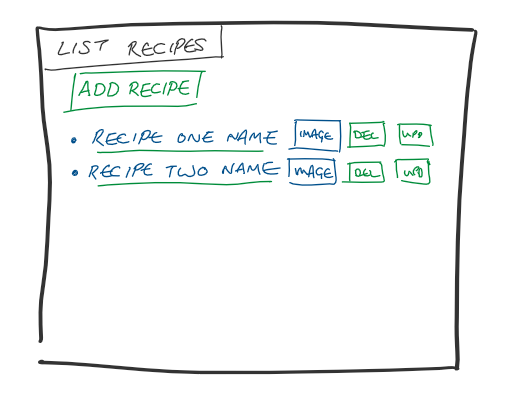 LIST RECIPES
ADD RECIPE
• RECIPE ONE NAME IMAGE DEL UPD
• RECIPE TWO NAME IMAGE DEL UPD